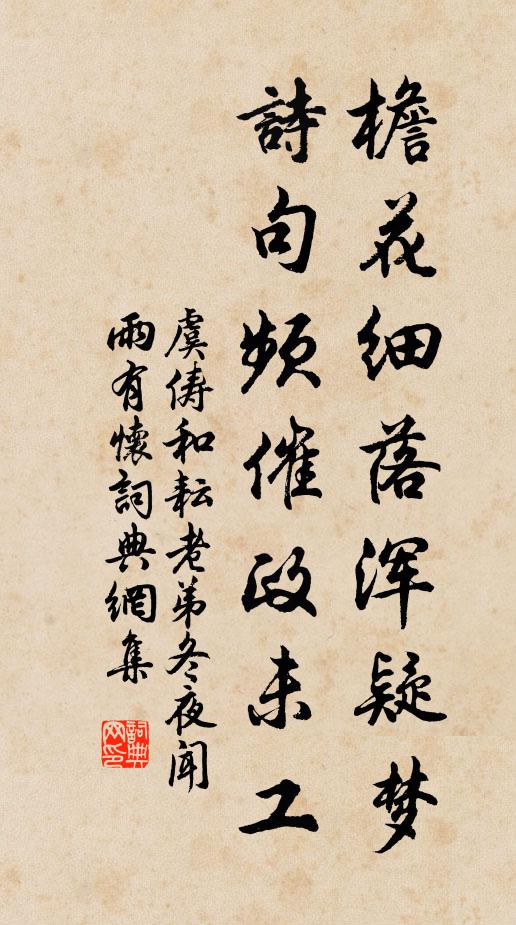 檐花细落浑疑梦
詩句頻催政未工
虞儔和耘老弟冬夜聞
雨有懷詞典網集
詞典
网印